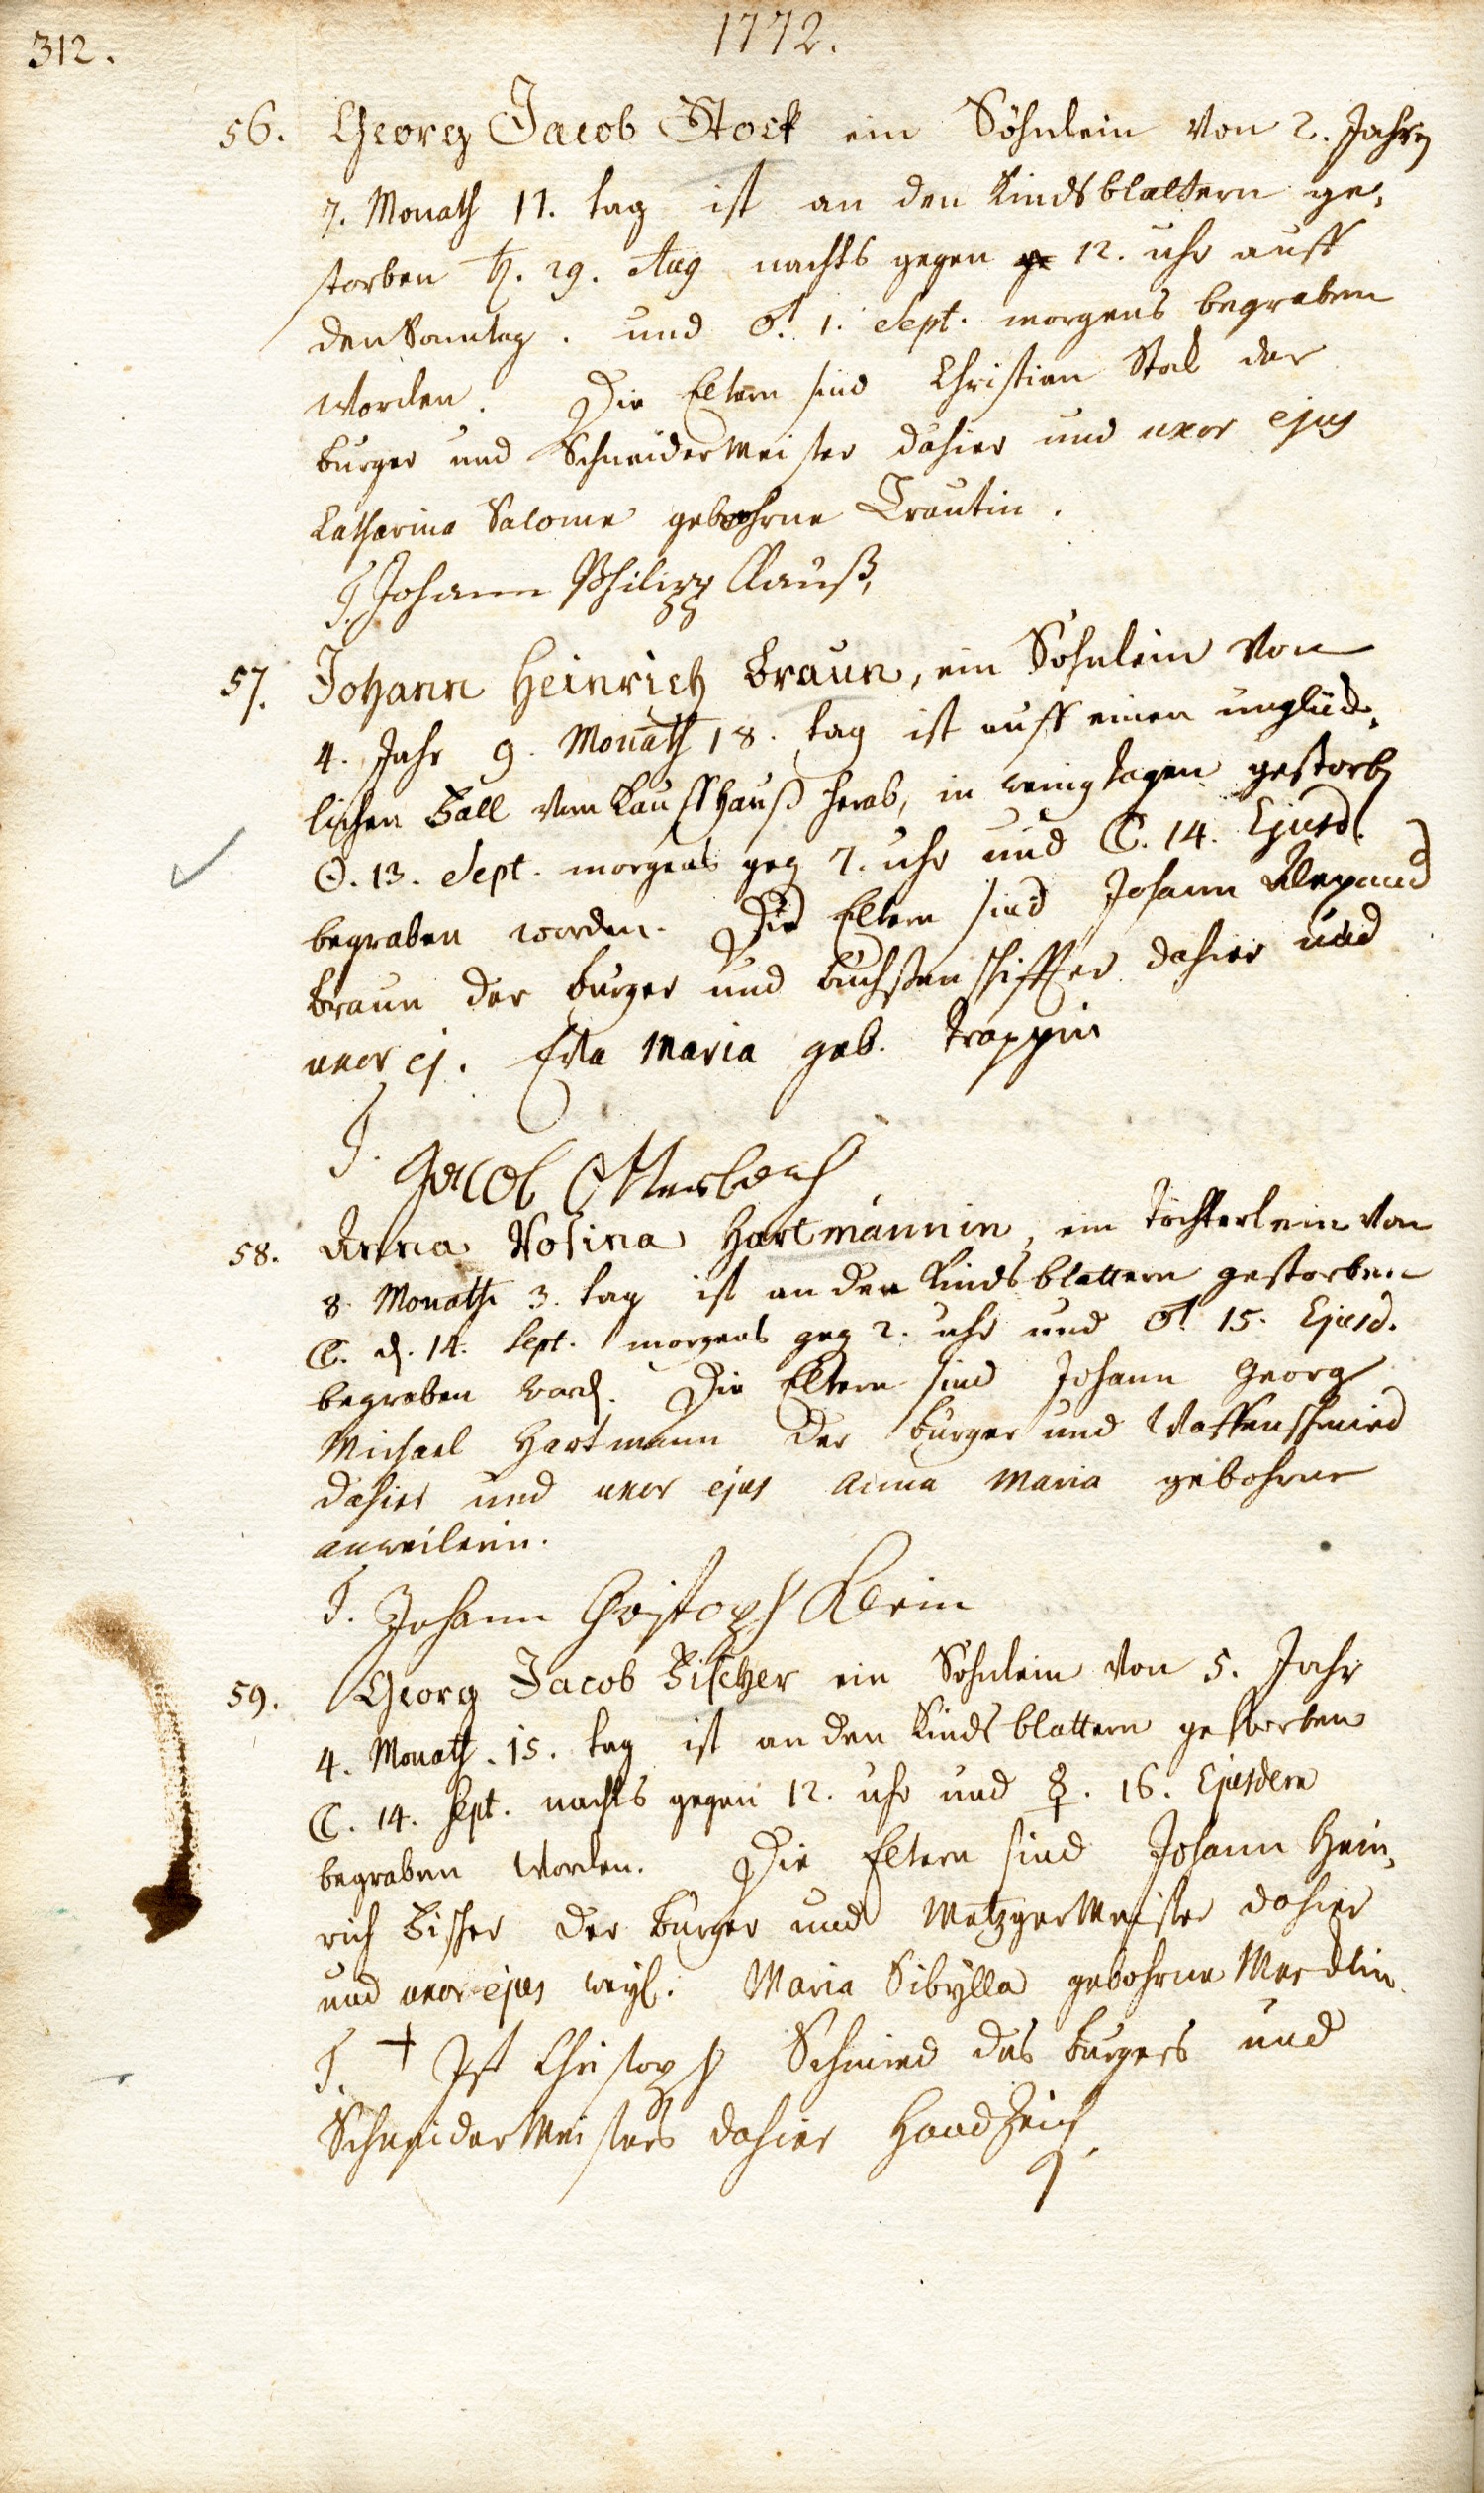 312.
1772.
56. Georg Jacob Stock ein Söhnlein von 2. Jahren
7. Monath 11. tag ist an den Kindsblattern ge-
storben ♄. 29. Aug nachts gegen 12. uhr auff
den Sonntag. und ♂. 1. Sept. morgens begraben
worden. Die Eltern sind Christian Stock der
burger und Schneidermeister dahier und uxor ejus
Catharina Salome gebohrne Trautin.
T. Johann Philipp Clauß,
57. Johann Heinrich Braun, ein Söhnlein von
4. Jahr 9. Monath 18. tag ist auff einen unglück-
lichen Fall vom Kauffhauß herab, in wenig tagen gestorben
☉. 13. Sept. morgens geg 7. uhr und ☾. 14. Ejusd.
begraben worden. Die Eltern sind Johann
Braun der burger und dahier und
uxor ej. Eva Maria geb. Trappin
T. Jacob Ottersbach
58. Anna Rosina Hartmännin, ein Töchterlein von
8. Monath 3. tag ist an den Kindsblattern gestorben
☾. d. 14. Sept. morgens geg 2. uhr und ♂. 15. Ejusd.
begraben word. Die Eltern sind Johann Georg
Michael Hartmann der burger und Waffenschmied
dahier und uxor ejus Anna Maria gebohrne
anweilerin.
T. Johann Christoph Klein
59. Georg Jacob Fischer ein Söhnlein von 5. Jahr
4. Monath. 15. tag ist an den Kindsblattern gestorben
☾. 14. Sept. nachts gegen 12. uhr und ☿. 16. Ejusdem
begraben worden. Die Eltern sind Johann Hein-
rich Fischer der burger und Metzgermeister dahier
und uxor ejus weyl. Maria Sibylla gebohrne
T. + Ist Christoph Schmied des burgers und
Schneidermeisters dahier Handzeich